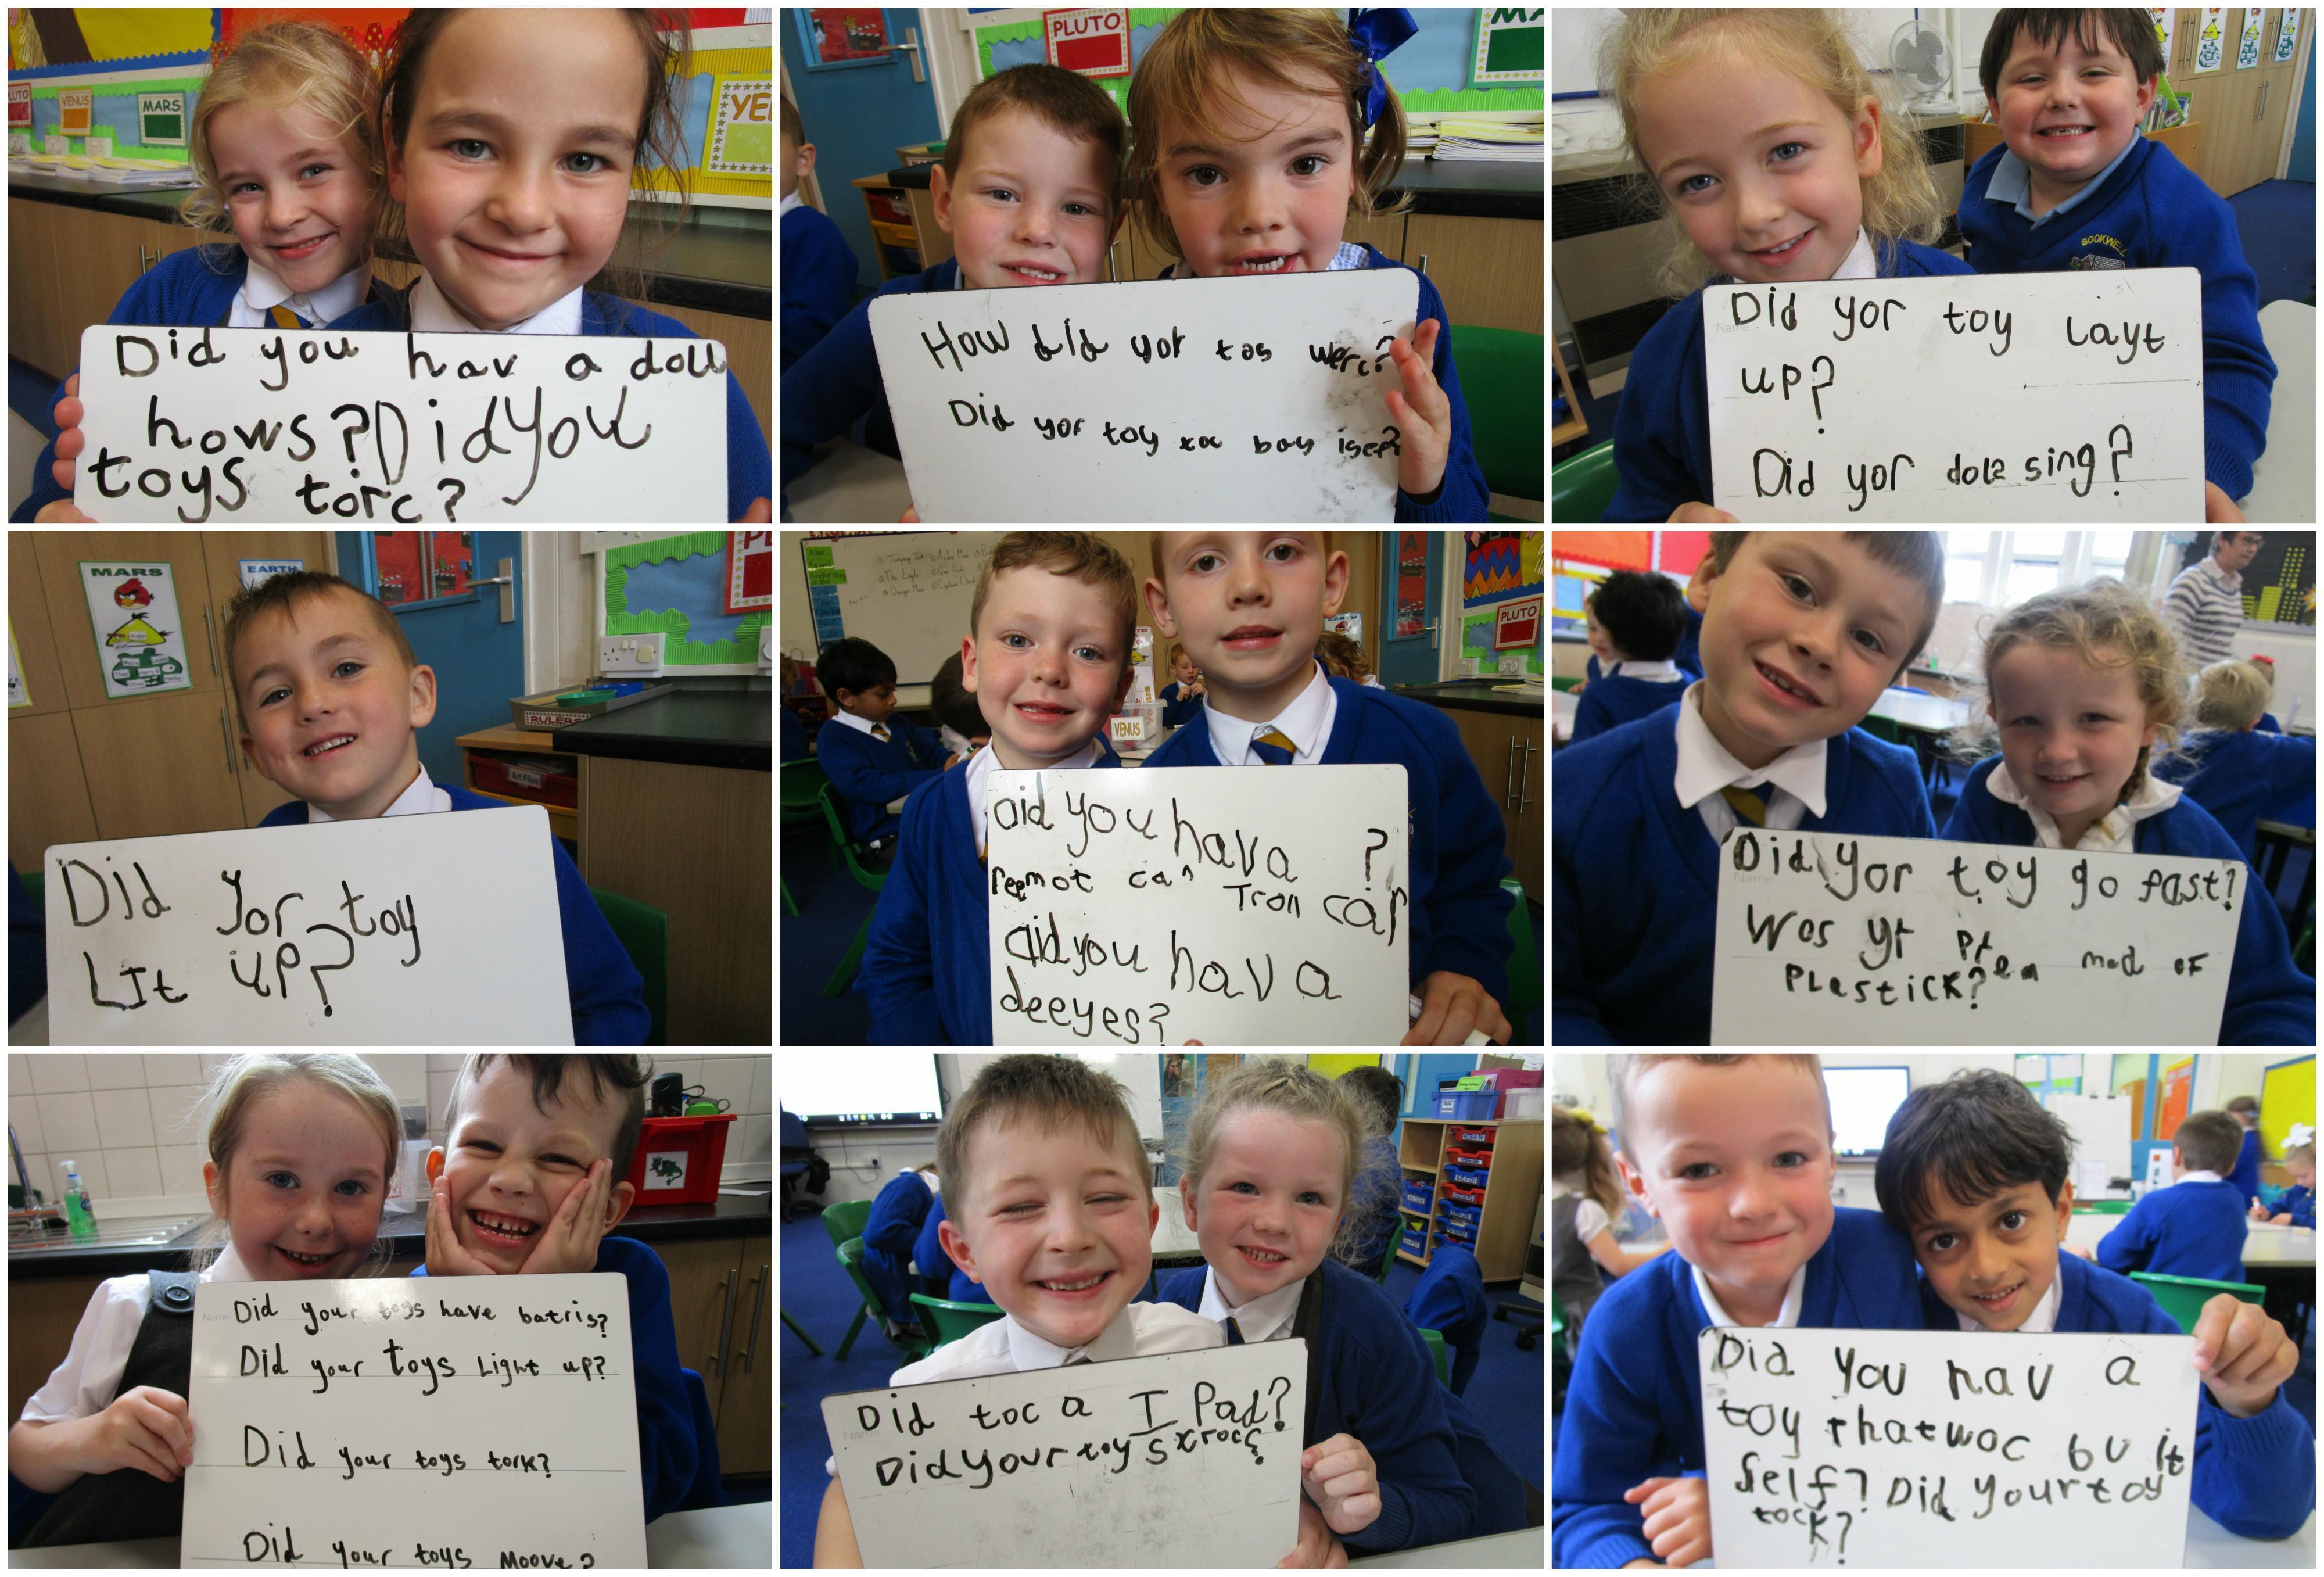 PLUTO
VENUS
MARS
YE
Did you hav a doll
hows? Did you
toys torc?
PLUTO
MA
How did yor tos werc?
Did yor toy toc bay isef?
BOOKWELL
Did yor toy Layt
up?
Did yor dole sing?
MARS
EARTH
RULERS
Art Files
Did yor toy
LIt up?
VENUS
PLUTO
did you hav a ?
reemot can Troll car
did you hav a
deeyes?
Did yor toy go fast?
Wos yt mad of
PLastick?
Did your toys have batris?
Did your toys Light up?
Did your toys tork?
Did your toys Moove?
Did toc a I Pad?
Did your toy s
Did you hav a
toy thatwoc bu it
self? Did your toy
tock?